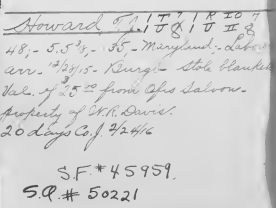 Howard T.J. 1 T 7 1 R IO 7
1 U 8 1 U II 8
48,- 5.5⅜,- 135,- Maryland,- Labor
arr. 12/25/15 - Burg. - Stole blankets
Val. of $25.00 from Saloon.
property of W.R. Davis.
20 days Co.J. 2/24/16
S.F. # 45959.
S.Q. # 50221